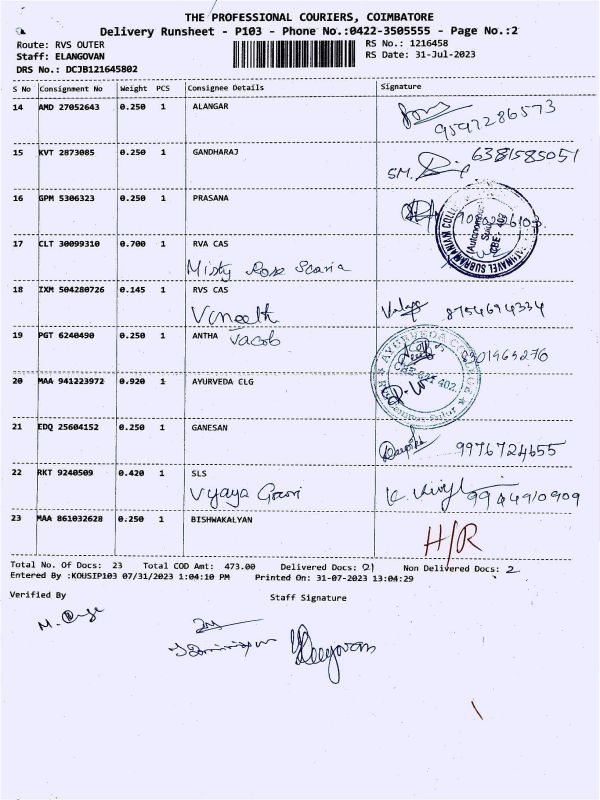 THE PROFESSIONAL COURIERS, COIMBATORE
Delivery Runsheet - P103 - Phone No.:0422-3505555 - Page No.:2
Route: RVS OUTER RS No.: 1216458
Staff: ELANGOVAN RS Date: 31-Jul-2023
DRS No.: DCJB121645802
S No Consignment No Weight PCS Consignee Details Signature
14 AMD 27052643 0.250 1 ALANGAR
9597286573
15 KVT 2873085 0.250 1 GANDHARAJ
SM. 6381585051
16 GPM 5306323 0.250 1 PRASANA
17 CLT 30099310 0.700 1 RVA CAS
Misty Rose Scaria
18 IXM 504280726 0.145 1 RVS CAS
Vineeth 8754694334
19 PGT 6240490 0.250 1 ANTHA
Jacob 8301965276
20 MAA 941223972 0.920 1 AYURVEDA CLG
AYURVEDA COLLEGE
21 EDQ 25604152 0.250 1 GANESAN
Deepika 9976724655
22 RKT 9240509 0.420 1 SLS
Vijaya Gowri 9944910909
23 MAA 861032628 0.250 1 BISHWAKALYAN
H/R
Total No. Of Docs: 23 Total COD Amt: 473.00 Delivered Docs: 21 Non Delivered Docs: 2
Entered By :KOUSIP103 07/31/2023 1:04:10 PM Printed On: 31-07-2023 13:04:29
Verified By Staff Signature